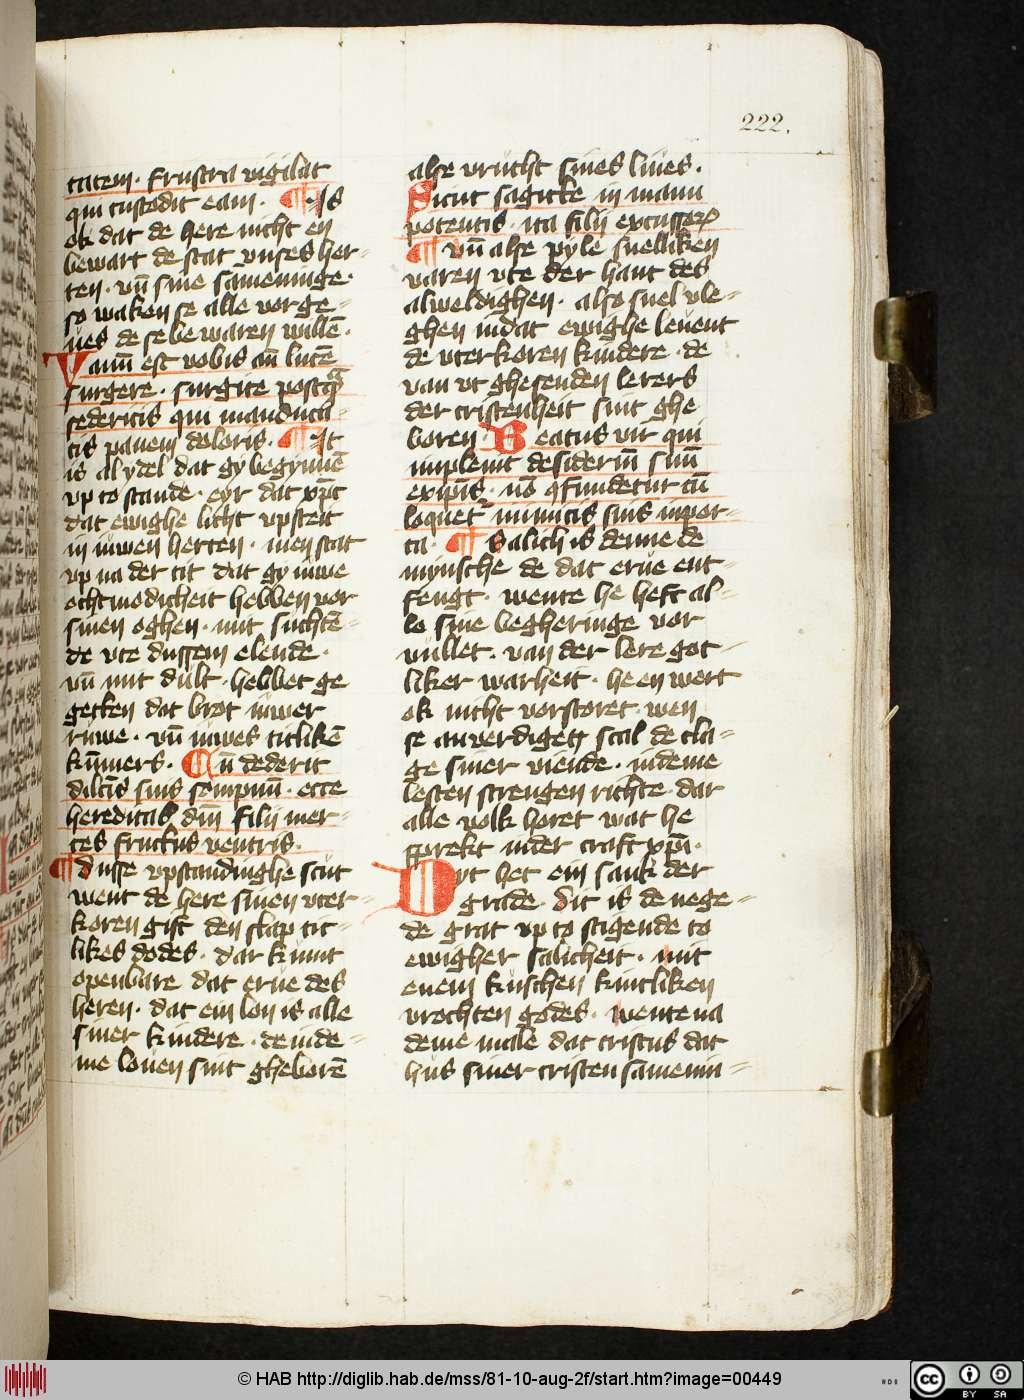 222.
tatem. frustra vigilat
qui custodit eam. ¶ Is
ok dat de here nicht en
bewart de stat vnses her=
ten. vn̄ sine sameninge.
so waken se alle vorge=
ues de se bewaren willē.
Vanū est vobis an̄ lucē
surgere. surgite postqᵃ
sederitis qui manduca=
tis panem doloris. ¶ It
is al ydel dat gy begynnē
vp to stande. eyr dat xp̄c
dat ewighe licht vpsteit
in iuwen herten. men stat
vp na der tit dat gy iuwe
echtmodicheit hebben vor
sinen oghen. mit suchtē=
de vte dussem elende.
vn̄ mit dult. hebbet ge
getten dat brot iuwer
ruwe. vn̄ iuwes titlikē
kūmers. Cū dederit
dilc̄is suis sompnū. ecce
hereditas dn̄i filij mer=
ces fructus ventris.
¶ dusse vpstandinghe scut
went de here sinen vter=
koren gift den slap tit=
likes dodes. dar kumt
openbare dat erue des
heren. dat ein lon is alle
siner kindere. de in de=
me louen sint gheborē
alse vrucht sines liues.
Sicut sagitte in manu
potentis. ita filij excussoꝝ
¶ vn̄ alse pyle snelliken
varen vte der hant des
alweldighen. also snel vle=
ghen in dat ewighe leuent
de vterkoren kindere. de
van vt ghesenden lerers
der cristenheit sint ghe
boren. Beatus vir qui
impleuit desideriū suū
ex ip̄is. nō ꝯfundetur cū
loquet᷑ inimicis suis in por=
ta. ¶ Salich is denne de
mynsche de dat erue ent=
fengt. wente he heft al=
lo sine begheringe vor
vullet. van der lere got=
liker warheit. he en wert
ok nicht vorstoret. wen
se anverdigen scal de cla=
ge siner viende. in deme
lesten strengen richte. dar
alle volk horet wat he
sprekt in der craft xp̄i.
Dyt het ein sank der
grade. dit is de nege=
de grat vp to stigende to
ewigher salicheit. mit
enem kuschen kintliken
vrochten godes. wente na
deme male dat cristus dat
hus siner cristen samenin=
© HAB http://diglib.hab.de/mss/81-10-aug-2f/start.htm?image=00449
cc BY SA